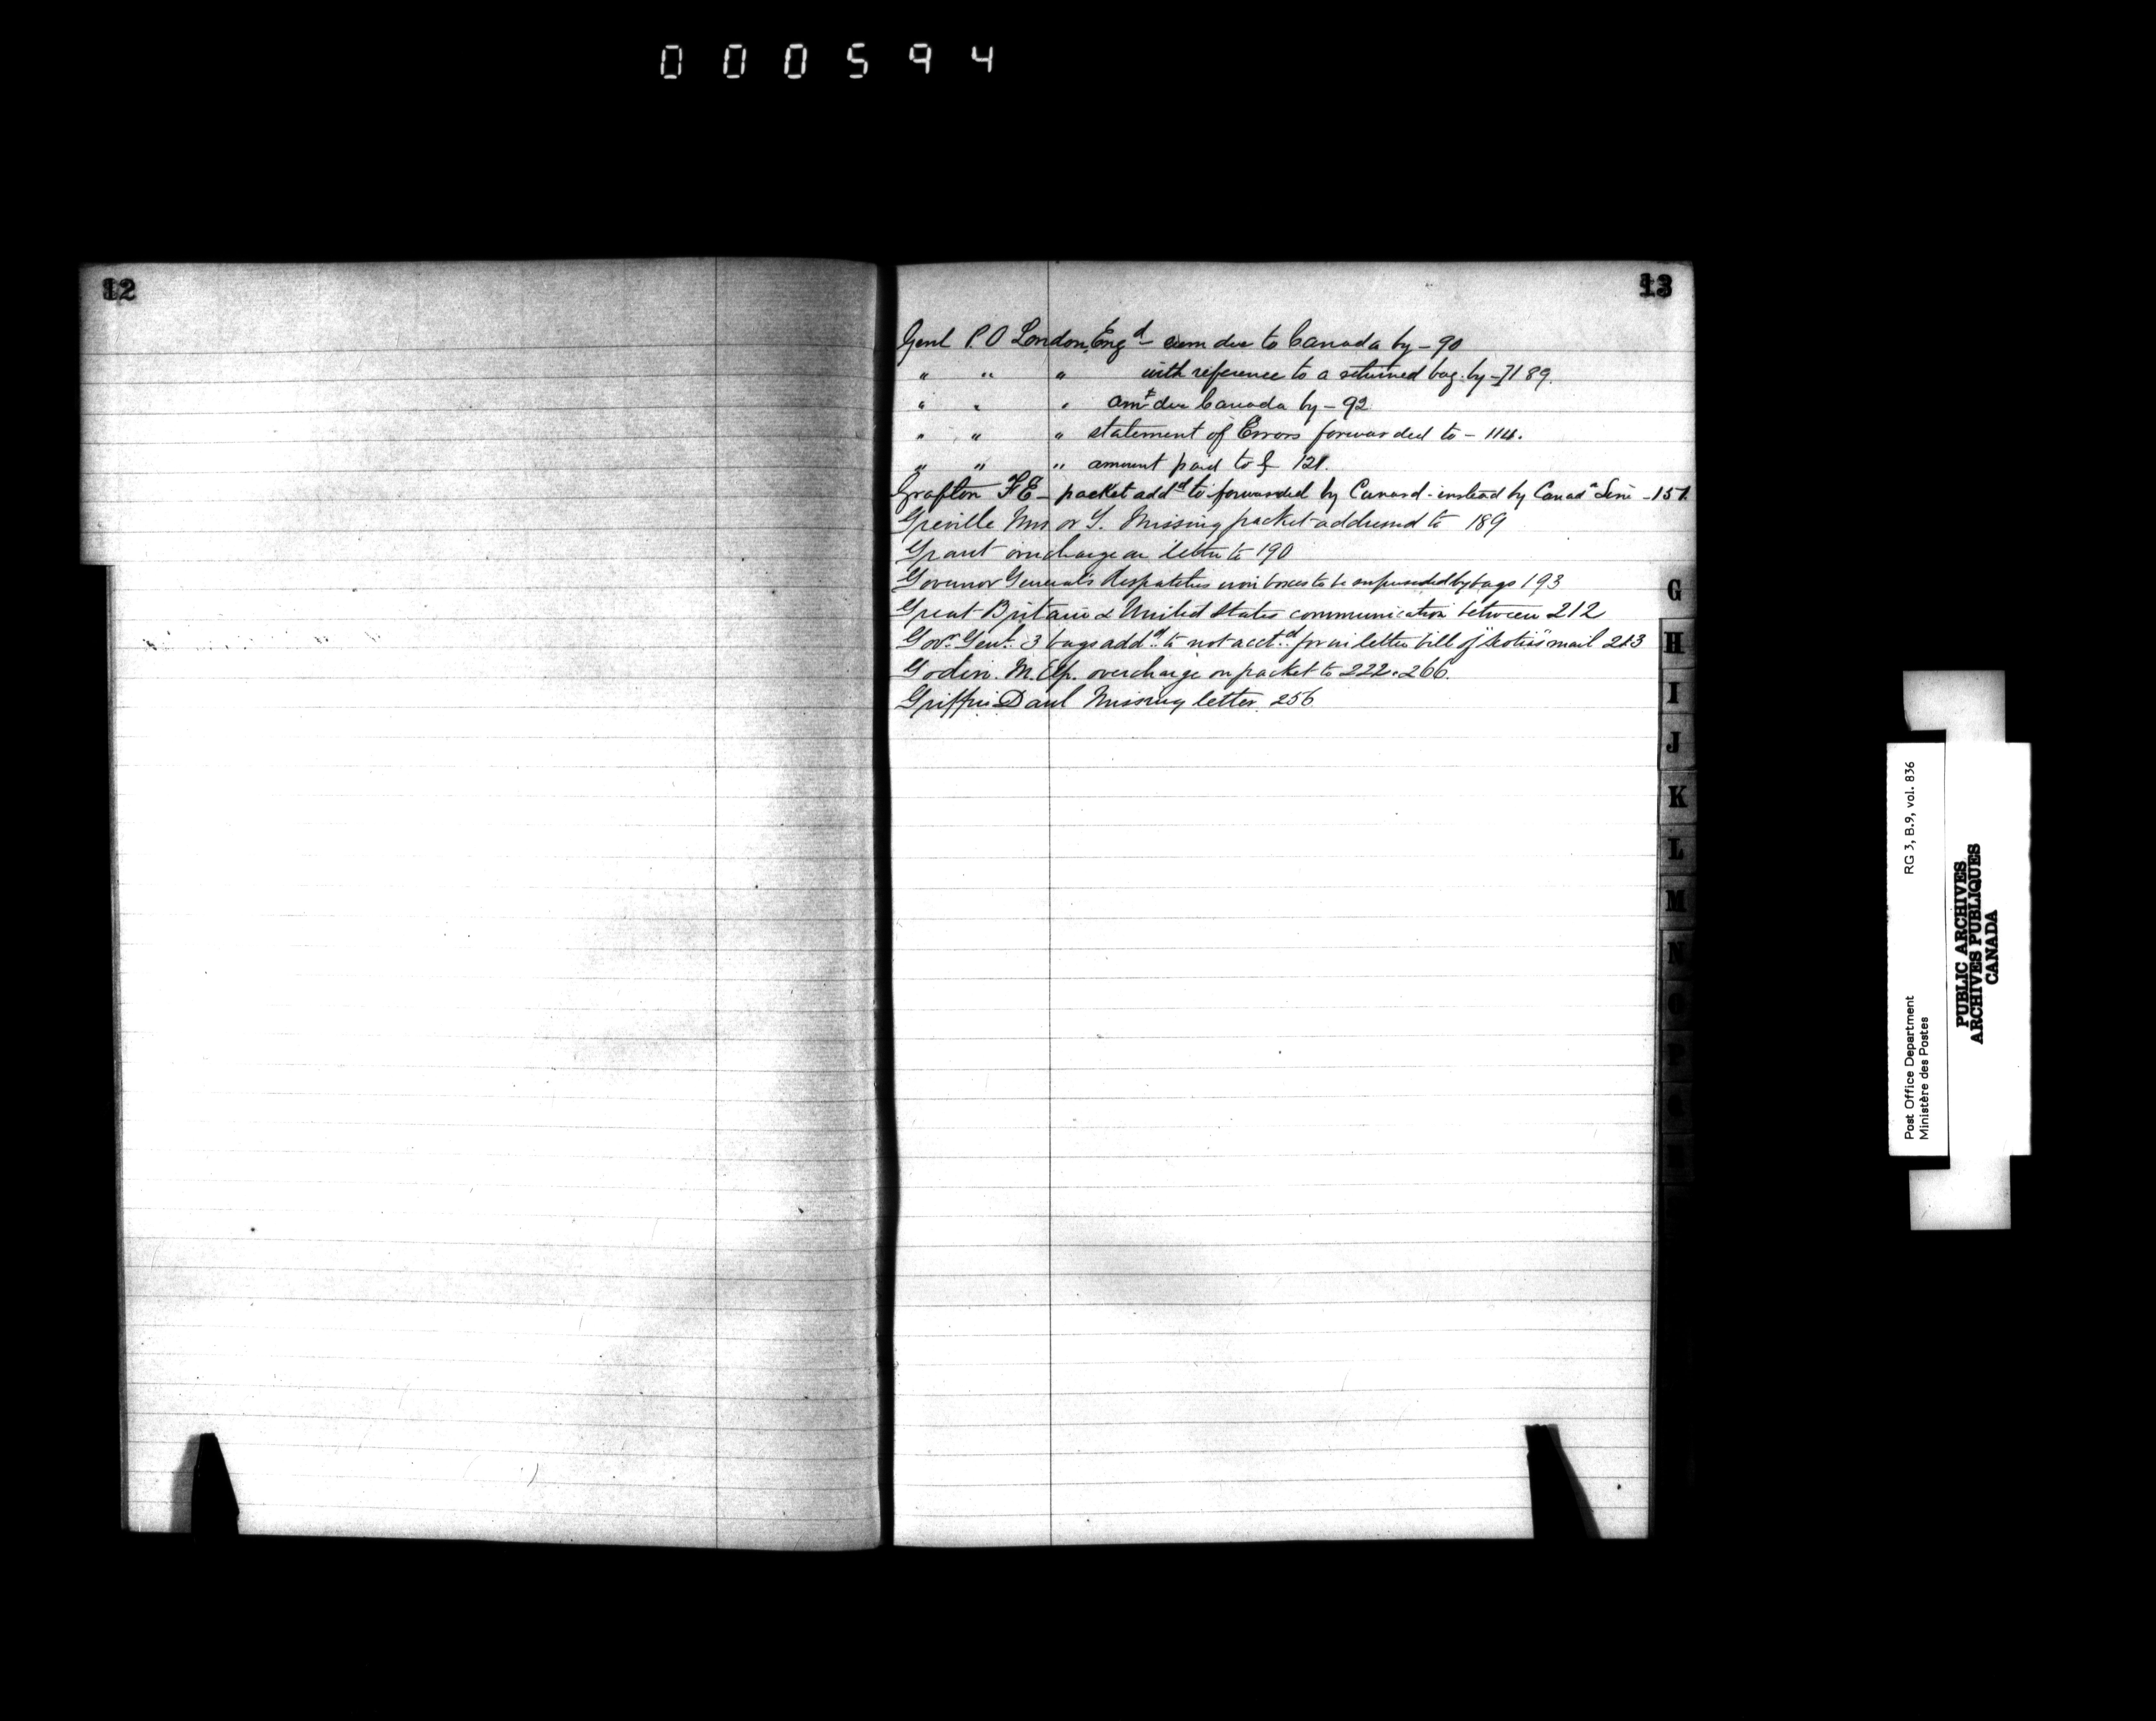 000594
12
13
Genl P.O London, Engd – sum due to Canada by – 90
" " " with reference to a returned bag. by – 189.
" " " amt due Canada by – 92
" " " statement of Errors forwarded to – 114.
" " " amount paid to 121.
Grafton F E – packet addd to forwarded by Cunard – instead by Canadn Line – 157.
Greville Mrs or Y. Missing packet addressed to 189
Grant overcharge on letter to 190
Governor General's despatches iron boxes to be superseded by bags 193
Great Britain & United States communication between 212
Govr Genl. 3 bags addd. to not acctd. for in letter bill of "Scotia" mail 213
Godin. M. Elp. overcharge on packet to 222. 266.
Griffin Danl Missing letter. 256
G
H
I
J
K
L
M
N
O
P
Post Office Department
Ministère des Postes
RG 3, B.9, vol. 836
PUBLIC ARCHIVES
ARCHIVES PUBLIQUES
CANADA